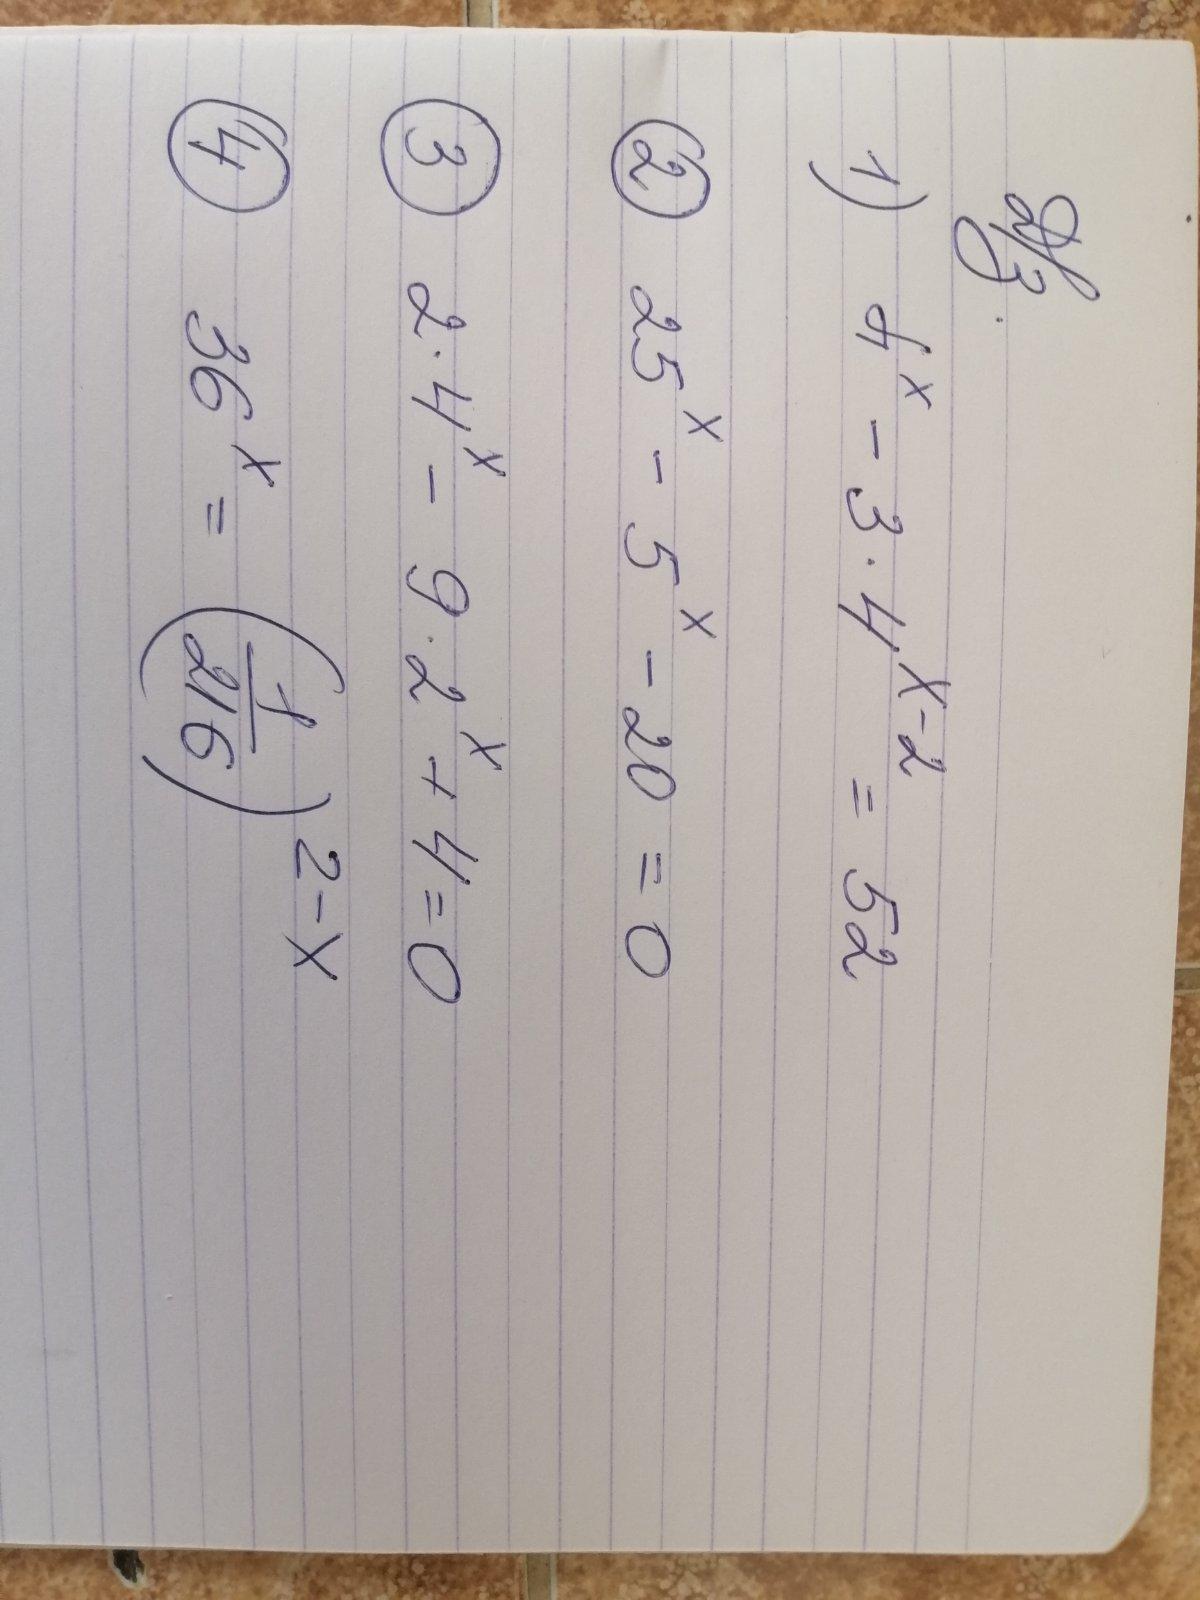 Д/з.
1) 4ˣ - 3 · 4ˣ⁻² = 52
② 25ˣ - 5ˣ - 20 = 0
③ 2 · 4ˣ - 9 · 2ˣ + 4 = 0
④ 36ˣ = (1/216)²⁻ˣ